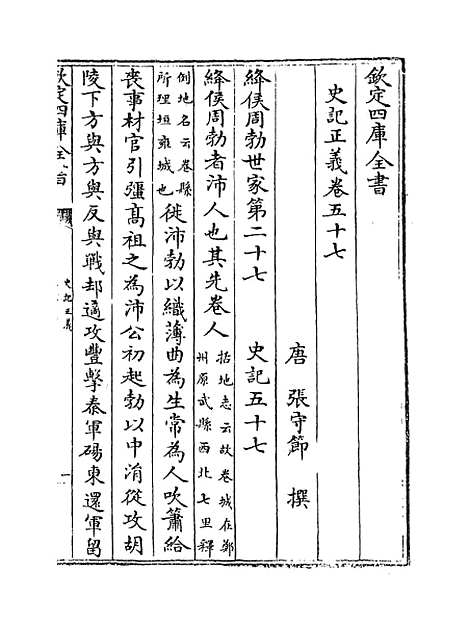 欽定四庫全書
史記正義卷五十七
唐 張守節 撰
絳侯周勃世家第二十七 史記五十七
絳侯周勃者沛人也其先卷人括地志云故卷城在鄭
州原武縣西北七里釋
例地名云卷縣
所理垣雍城也徙沛勃以織薄曲為生常為人吹簫給
喪事材官引彊髙祖之為沛公初起勃以中涓從攻胡
陵下方與方與反與戰却適攻豐擊秦軍碭東還軍留
欽定四庫全書
史記正義
一